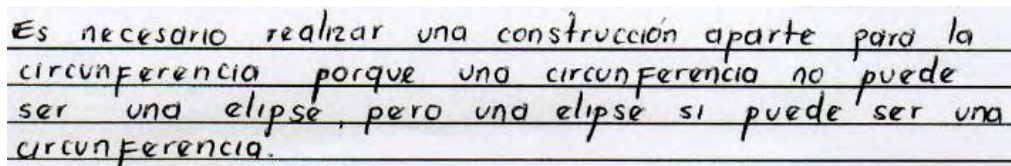 Es necesario realizar una construcción aparte para la
circunferencia porque una circunferencia no puede
ser una elipse, pero una elipse si puede ser una
circunferencia.